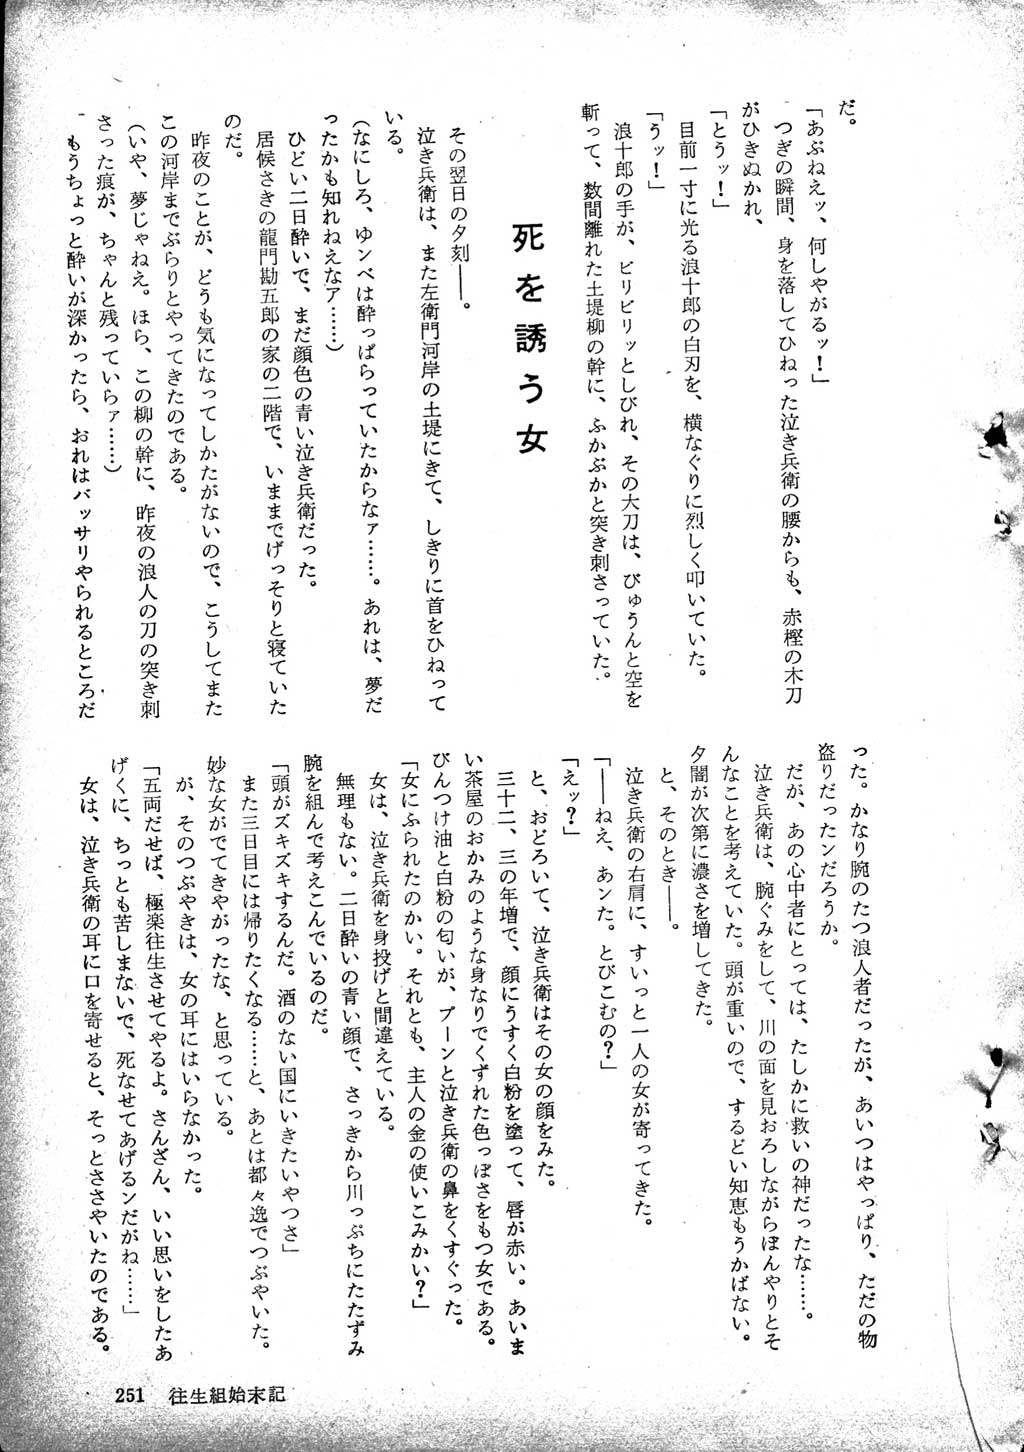 だ。
「あぶねえッ、何しやがるッ！」
つぎの瞬間、身を落してひねった泣き兵衛の腰からも、赤樫の木刀
がひきぬかれ、
「とうッ！」
目前一寸に光る浪十郎の白刃を、横なぐりに烈しく叩いていた。
「うッ！」
浪十郎の手が、ビリビリッとしびれ、その大刀は、びゅうんと空を
斬って、数間離れた土堤柳の幹に、ふかぶかと突き刺さっていた。
死を誘う女
その翌日の夕刻――。
泣き兵衛は、また左衛門河岸の土堤にきて、しきりに首をひねって
いる。
（なにしろ、ゆンベは酔っぱらっていたからなァ……。あれは、夢だ
ったかも知れねえなァ……）
ひどい二日酔いで、まだ顔色の青い泣き兵衛だった。
居候さきの龍門勘五郎の家の二階で、いままでげっそりと寝ていた
のだ。
昨夜のことが、どうも気になってしかたがないので、こうしてまた
この河岸までぶらりとやってきたのである。
（いや、夢じゃねえ。ほら、この柳の幹に、昨夜の浪人の刀の突き刺
さった痕が、ちゃんと残っていらァ……）
もうちょっと酔いが深かったら、おれはバッサリやられるところだ
った。かなり腕のたつ浪人者だったが、あいつはやっぱり、ただの物
盗りだったンだろうか。
だが、あの心中者にとっては、たしかに救いの神だったな……。
泣き兵衛は、腕ぐみをして、川の面を見おろしながらぼんやりとそ
んなことを考えていた。頭が重いので、するどい知恵もうかばない。
夕闇が次第に濃さを増してきた。
と、そのとき――。
泣き兵衛の右肩に、すいっと一人の女が寄ってきた。
「――ねえ、あンた。とびこむの？」
「えッ？」
と、おどろいて、泣き兵衛はその女の顔をみた。
三十二、三の年増で、顔にうすく白粉を塗って、唇が赤い。あいま
い茶屋のおかみのような身なりでくずれた色っぽさをもつ女である。
びんつけ油と白粉の匂いが、プーンと泣き兵衛の鼻をくすぐった。
「女にふられたのかい。それとも、主人の金の使いこみかい？」
女は、泣き兵衛を身投げと間違えている。
無理もない。二日酔いの青い顔で、さっきから川っぷちにたたずみ
腕を組んで考えこんでいるのだ。
「頭がズキズキするんだ。酒のない国にいきたいやつさ」
また三日目には帰りたくなる……と、あとは都々逸でつぶやいた。
妙な女がでてきやがったな、と思っている。
が、そのつぶやきは、女の耳にはいらなかった。
「五両だせば、極楽往生させてやるよ。さんざん、いい思いをしたあ
げくに、ちっとも苦しまないで、死なせてあげるンだがね……」
女は、泣き兵衛の耳に口を寄せると、そっとささやいたのである。
251 往生組始末記